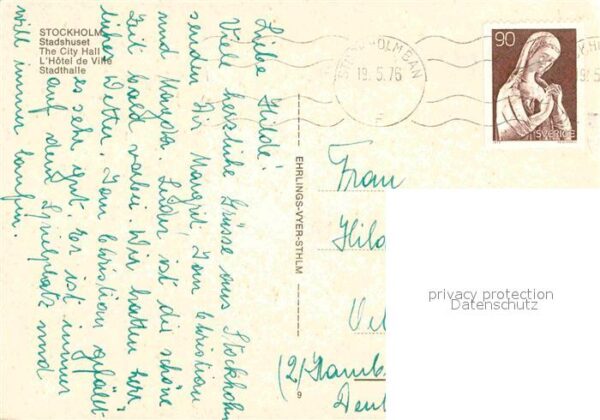 STOCKHOLM
Stadshuset
The City Hall
L'Hôtel de Ville
Stadthalle
Liebe Hilde!
Viel herzliche Grüsse aus Stockholm
senden Dir Margrit, Jan Christian
und Leider ist die schöne
Zeit bald vorbei. Wir hatten herr-
liches Wetter. Jan Christian gefällt
es sehr gut. Er ist immer
auf dem Spielplatz und
will immer laufen.
EHRLINGS-VYER-STHLM
9
STOCKHOLM BAN
19.5.76
90
SVERIGE
Frau
Hild
(2) Hamb
Deut
privacy protection
Datenschutz